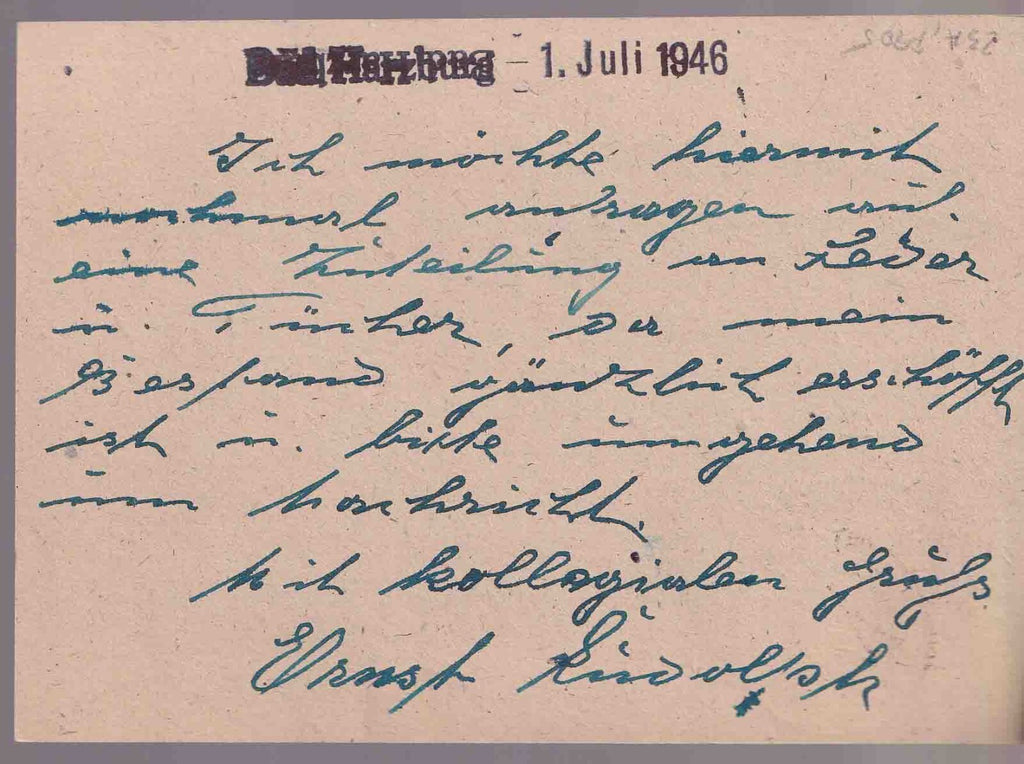 Bad Harzburg - 1. Juli 1946
Ich möchte hiermit
nochmal anfragen auf
eine Zuteilung an Leder
u. Tücher, da mein
Bestand gänzlich erschöpft
ist u. bitte umgehend
um Nachricht.
Mit kollegialen Gruß
Ernst